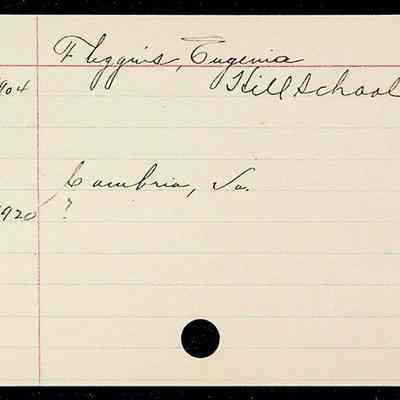 Fliggins, Eugenia
904 Hill School
Cambria, Va.
920 ?